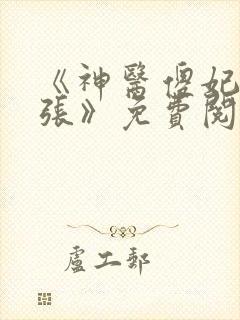 《神醫傻妃
張》免費閱
盧工郵